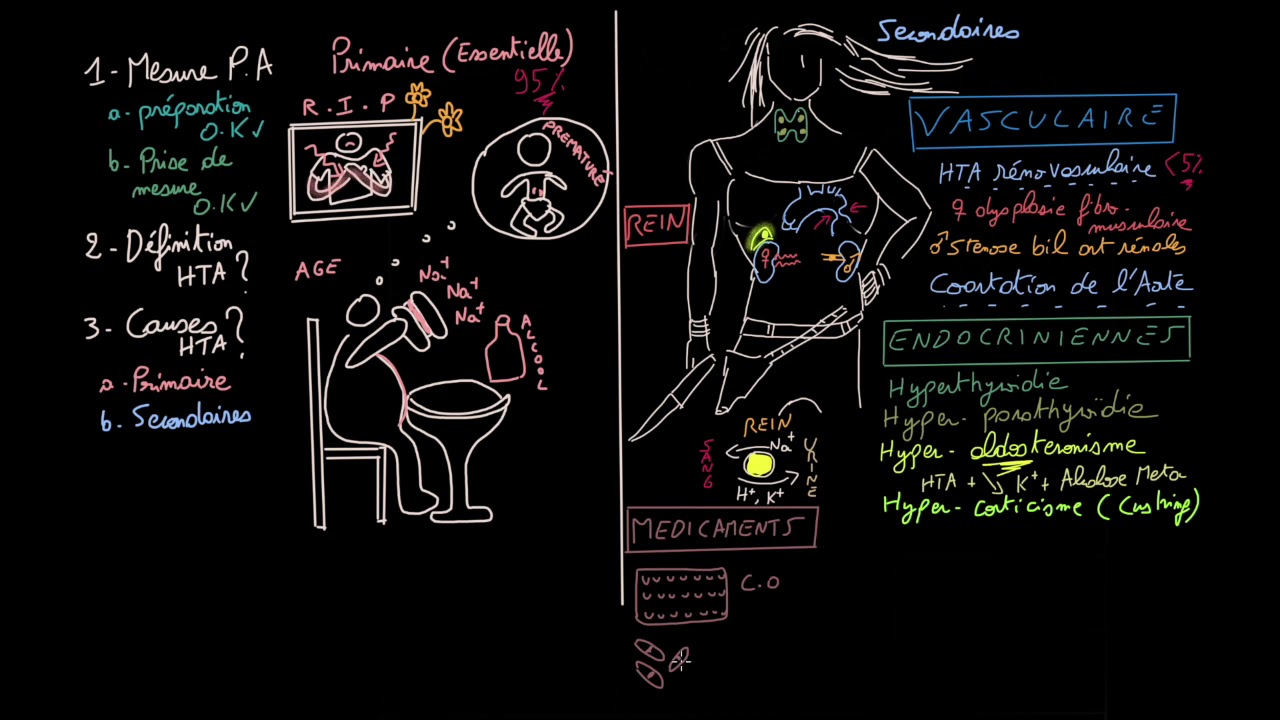 1- Mesure P.A
a- préparation
O.K
b- Prise de
mesure
O.K
2- Définition
HTA ?
3- Causes ?
HTA
a- Primaire
b- Secondaires
Primaire (Essentielle)
95%
R.I.P
PREMATURÉ
AGE
Na+
Na+
Na+
ALCOOL
Secondaires
REIN
VASCULAIRE
HTA rénovasculaire <5%
♀ dysplasie fibro-
musculaire
♂ Stenose bil art rénales
Coartation de l'Aorte
ENDOCRINIENNES
Hyperthyroïdie
Hyper- parathyroïdie
Hyper- aldosteronisme
HTA + ↘ K+ + Alcalose Meta
Hyper- corticisme (Cushing)
♀
♂
REIN
SANG
Na+
URINE
H+, K+
MEDICAMENTS
C.O